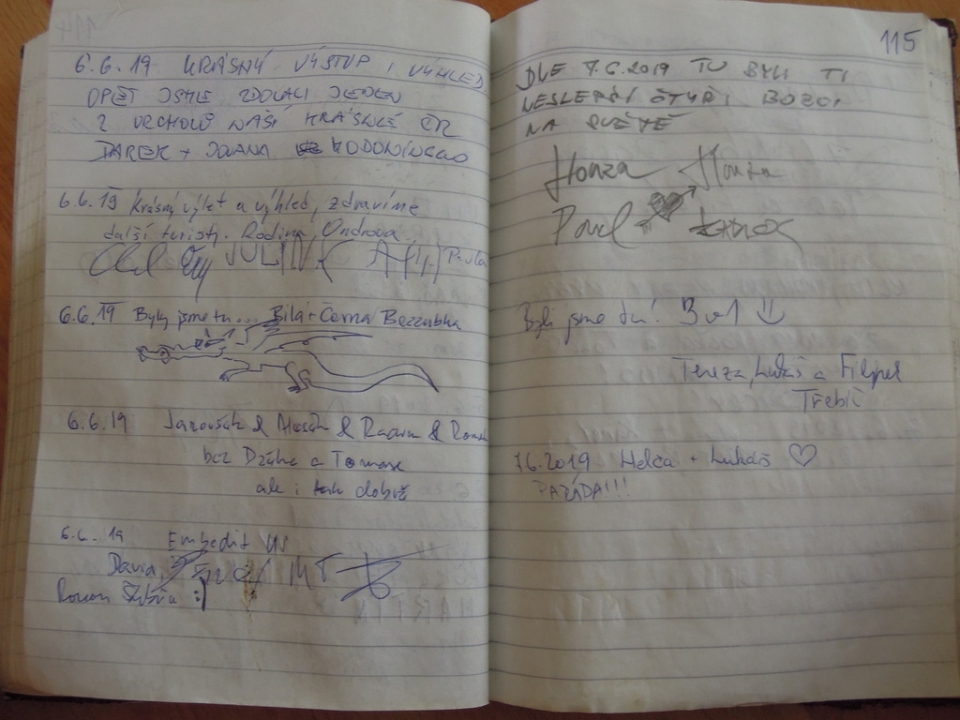 6.6.19 KRÁSNÝ VÝSTUP I VÝHLED
OPĚT JSME ZDOLALI JEDEN
Z VRCHOLŮ NAŠÍ KRÁSNÉ ČR
JAREK + IVANA HODONÍNSKO
6.6.19 Krásný výlet a výhled, zdravíme
další turisty. Rodina Ondrova
JULINK Pavla
6.6.19 Byly jsme tu... Bílá + Černá Bezzubka
6.6.19 Jaroušek & &
bez a Tomase
ale i tak dobrý
6.6.19 Embedit
David, MT
Roman :)
115
DNE 7.6.2019 TU BYLI TI
NEJLEPŠÍ ČTYŘI BOZCI
NA SVĚTĚ
Honza Honza
Pavel
Byli jsme tu! 3v1
Tereza, Lukáš a Filípek
Třebíč
7.6.2019 Helča + Lukáš ♡
PARÁDA!!!